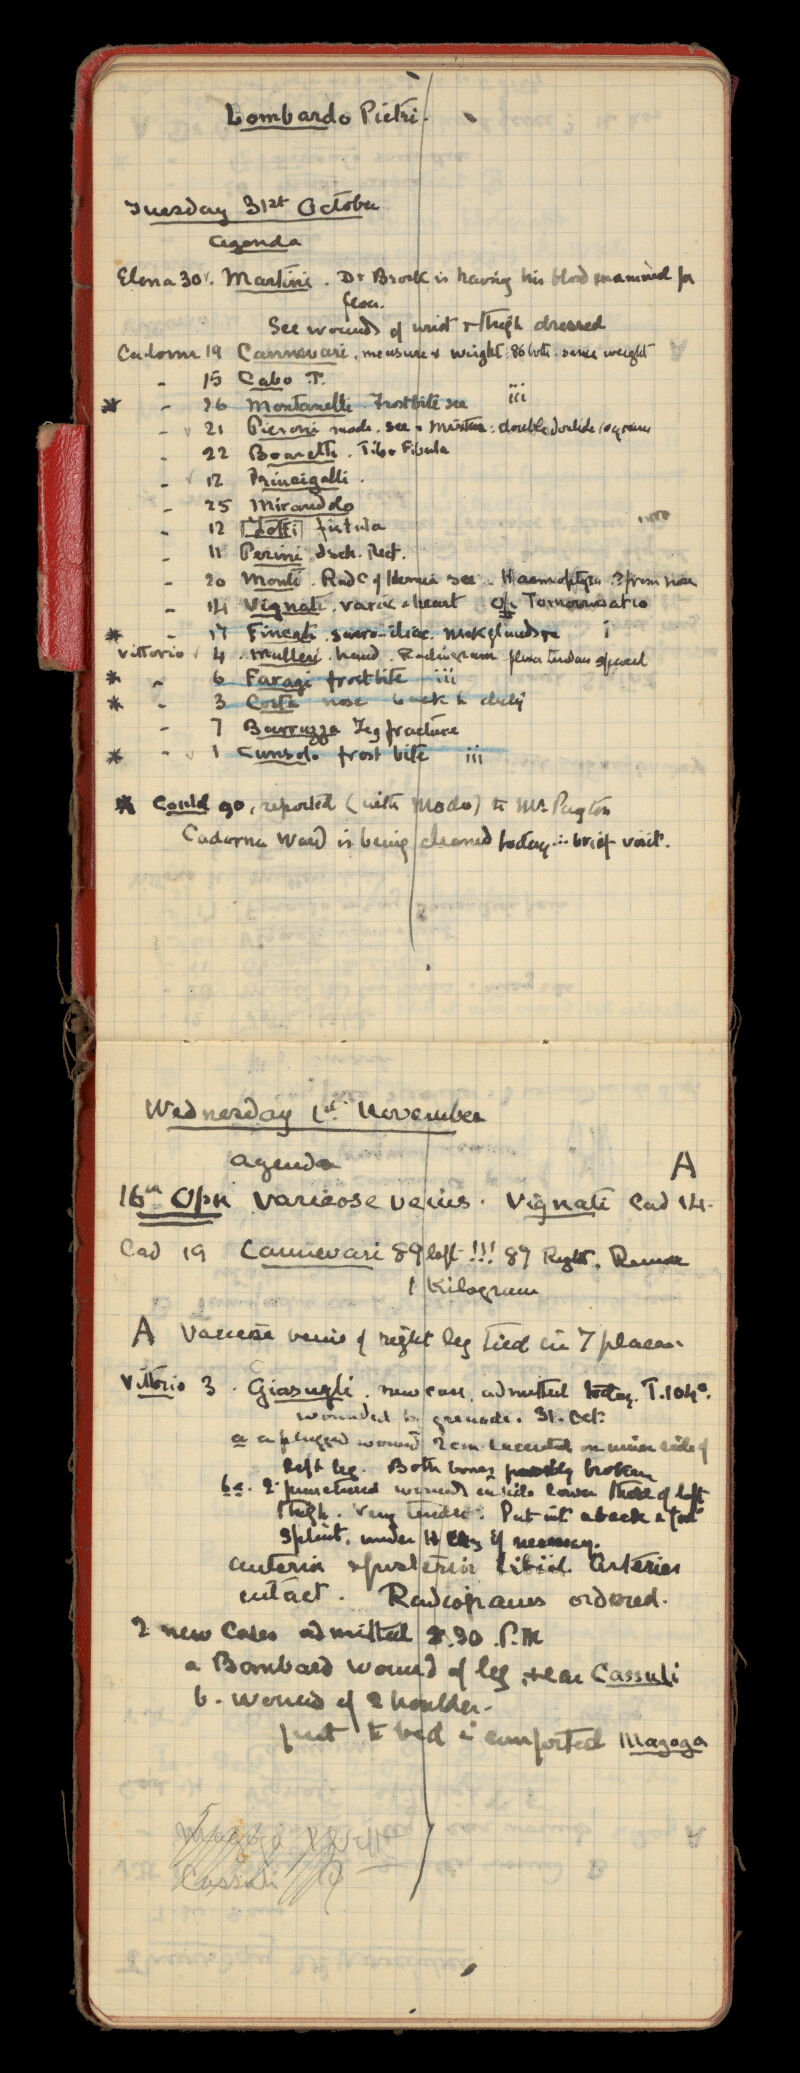 Lombardo Pietri.
Tuesday 31st October
agenda
Elena 30. Martini. Dr Brock is having his blood examined for
fever.
See wounds of wrist & thigh dressed
Cadorna 19 Cannevari. measure & weight: 86 both. same weight
- 15 Cabo T.
* - 26 Montanelli Frostbite see iii
- 21 Pieroni made. see
- 22 Bonetti. Tib & Fibula
- 12 Principalli.
- 25 Miranddo
- 12 fistula
- 11 Perini dsch. Rect.
- 20 Monti. Rad C of see. Haemoptysis ? from
- 14 Vignati. varix & heart Op. Tomorrow
* - 17 Fineati. sacro-iliac. neck glands i
Vittorio 4. Mulleri. hand. Radiogram
* - 6 Faragi frostbite iii
* - 3 Costa nose back to duty
- 7 Barruzza Leg fracture
* - 1 Cunsolo frost bite iii
* Could go, reported (with Modo) to Mr. Payton
Cadorna Ward is being cleaned today ∴ brief visit.
Wednesday 1st November
agenda
A
16th Opn varicose veins. Vignati Cad 14.
Cad 19 Cannevari 89 left !!! 87 Right.
1 Kilogram
A Varicose veins of right leg tied in 7 places.
Vittorio 3. Giasugli. new case, admitted today. T.104°.
wounded by grenade. 31. Oct:
a a plugged wound 2cm on inner side of
left leg. Both bones possibly broken
b. 2 punctured wounds lower third of left
thigh. Very tender. Put on a back & foot
splint, under if necessary.
anterior & posterior tibial arteries
intact. Radiograms ordered.
2 new cases admitted 8.30 P.M
a Bombard wound of leg, & ear Cassuli
b. wound of shoulder.
put to bed & comforted Magoga
Magoga
Cassuli